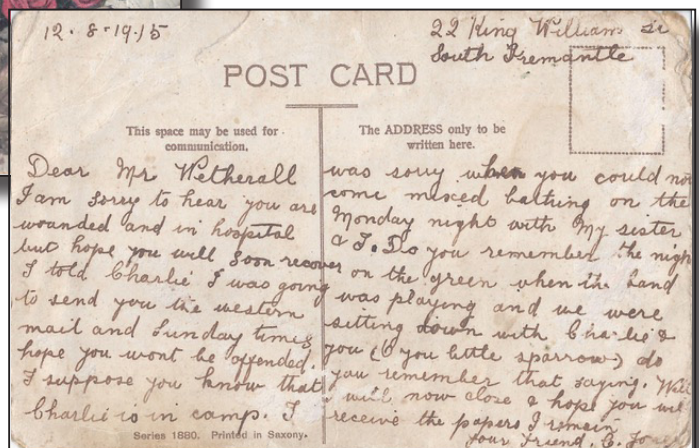 12. 8-19.15
22 King William St
South Fremantle
POST CARD
This space may be used for
communication.
The ADDRESS only to be
written here.
Dear Mr Wetherall
I am sorry to hear you are
wounded and in hospital
but hope you will soon recover
I told Charlie I was going
to send you the western
mail and Sunday times
hope you wont be offended.
I suppose you know that
Charlie is in camp. I
was sorry when you could not
come mixed bathing on the
Monday night with my sister
& I. Do you remember the nigh
on the green when the band
was playing and we were
sitting down with Charlie &
you (O you little sparrow) do
you remember that saying. Well
I will now close & hope you will
receive the papers I remain
Your Friend, C. Jones
Series 1880. Printed in Saxony.